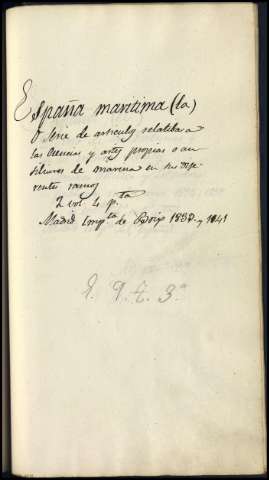 España maritima (la)
O Serie de articulos relatibas a
las Ciencias y artes propias o au
siliares de marina en sus dife
rentes ramos
2 vol. 4. pta
Madrid Impta de Boix 1839 y 1841
E. 9. t. 3.a